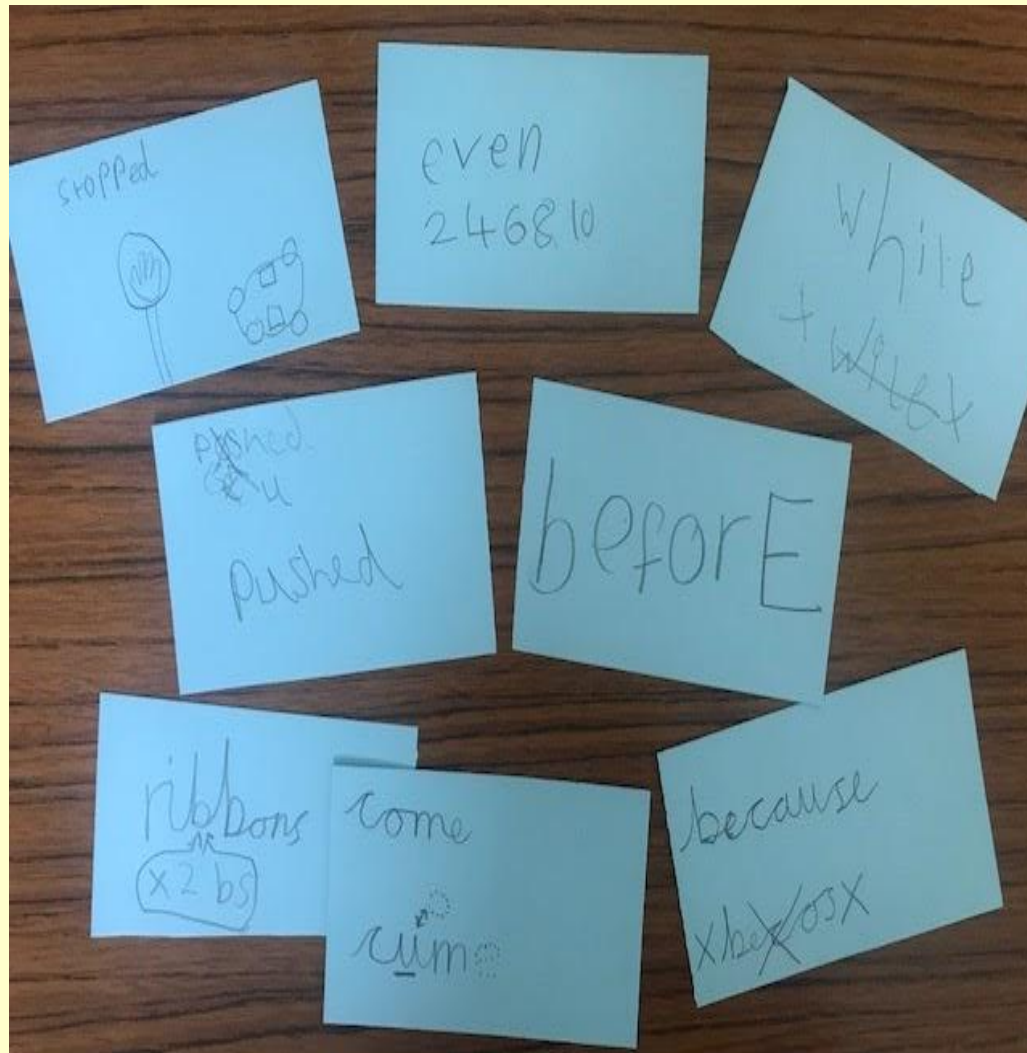 stopped
even
2 4 6 8 10
while
x wile x
pushed
u
pushed
beforE
ribbons
x 2 bs
come
cum
because
x becos x